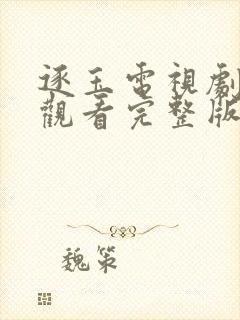 逐玉電視劇
觀看完整版
魏策